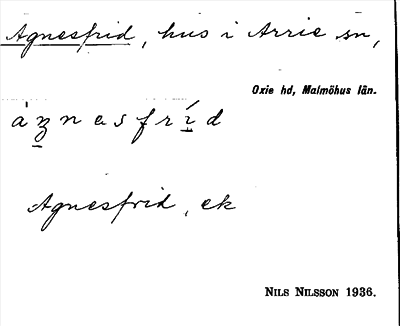 Agnesfrid, hus i Arrie sn,
Oxie hd, Malmöhus län.
àʒnesfríd
Agnesfrid, ek
NILS NILSSON 1936.